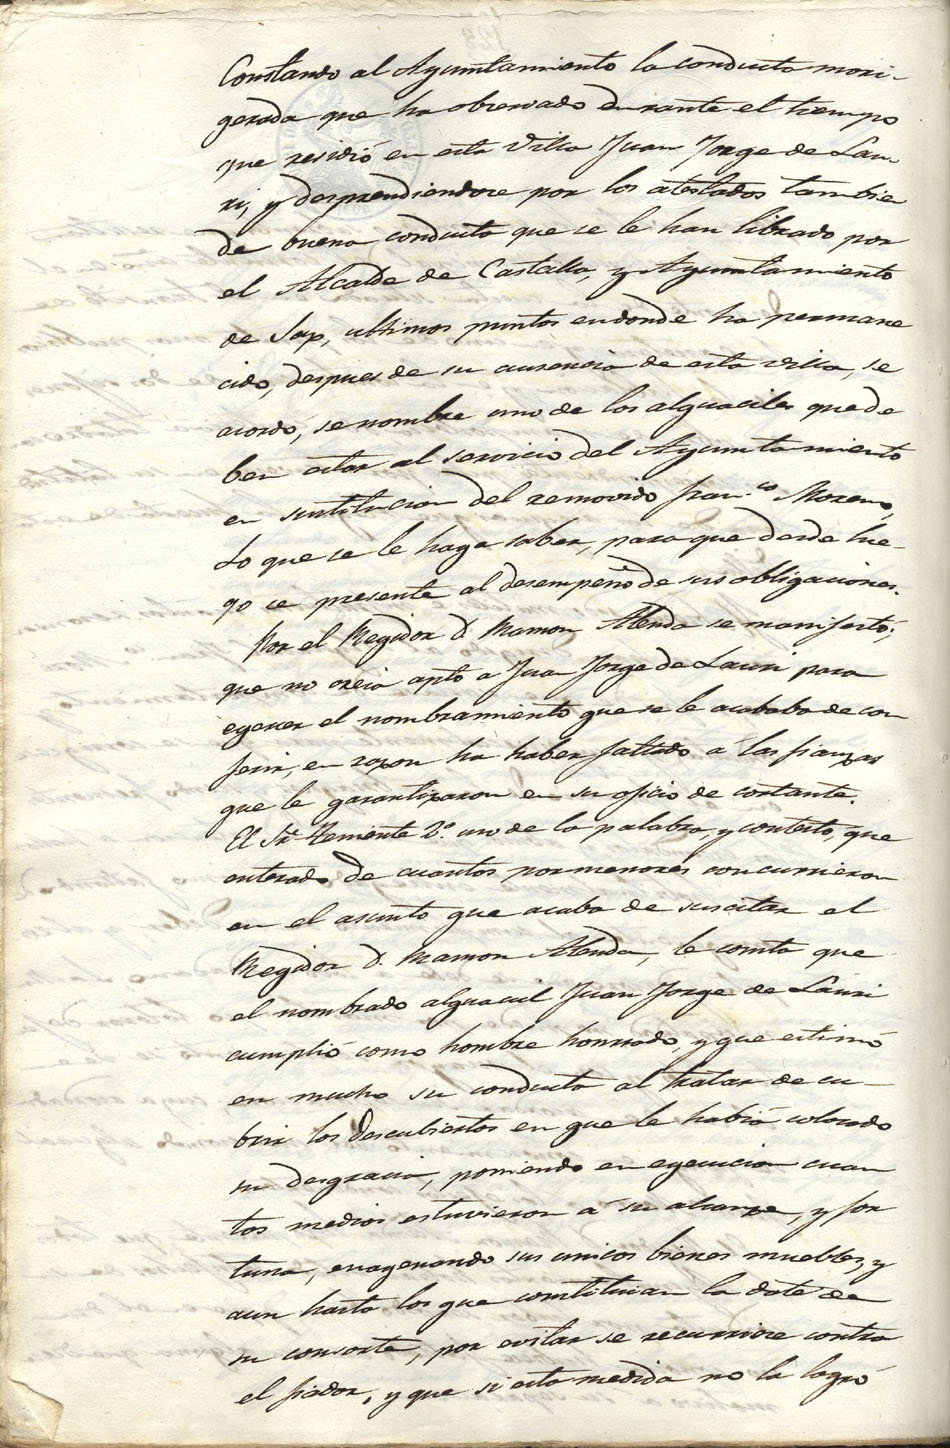 Constando al Ayuntamiento la conducta mori-
gerada que ha observado durante el tiempo
que residió en esta Villa Juan Jorge de Lau-
ri, y desprendiendose por los atestados tambien
de buena conducta que se le han librado por
el Alcalde de Castalla, y Ayuntamiento
de Sax, ultimos puntos endonde ha permane
cido, despues de su ausencia de esta villa, se
acordó, se nombre uno de los alguaciles que de
ben estar al servicio del Ayuntamiento
en sustitucion del removido Fran.co Moreno,
Lo que se le haga saber, para que desde lue-
go se presente al desempeño de sus obligaciones.
Por el Regidor D. Ramon Abenda se manifestó:
que no creia apto a Juan Jorge de Lauri para
egercer el nombramiento que se le acababa de con
ferir, en razon ha haber faltado a las fianzas
que le garantizaron en su oficio de cortante.
El Sr. Teniente 2.º uso de la palabra, y contestó, que
enterado de cuantos pormenores concurrieron
en el asunto que acaba de suscitar el
Regidor D. Ramon Abenda, le consta que
el nombrado alguacil Juan Jorge de Lauri
cumplió como hombre honrado, y que estimó
en mucho su conducta al tratar de cu-
brir los descubiertos en que le habia colocado
su desgracia, poniendo en egecucion cuan
tos medios estuvieron á su alcanze, y for
tuna, enagenando sus unicos bienes muebles, y
aun hasta los que constituian la dote de
su consorte, por evitar se recurriese contra
el fiador, y que si esta medida no la logró